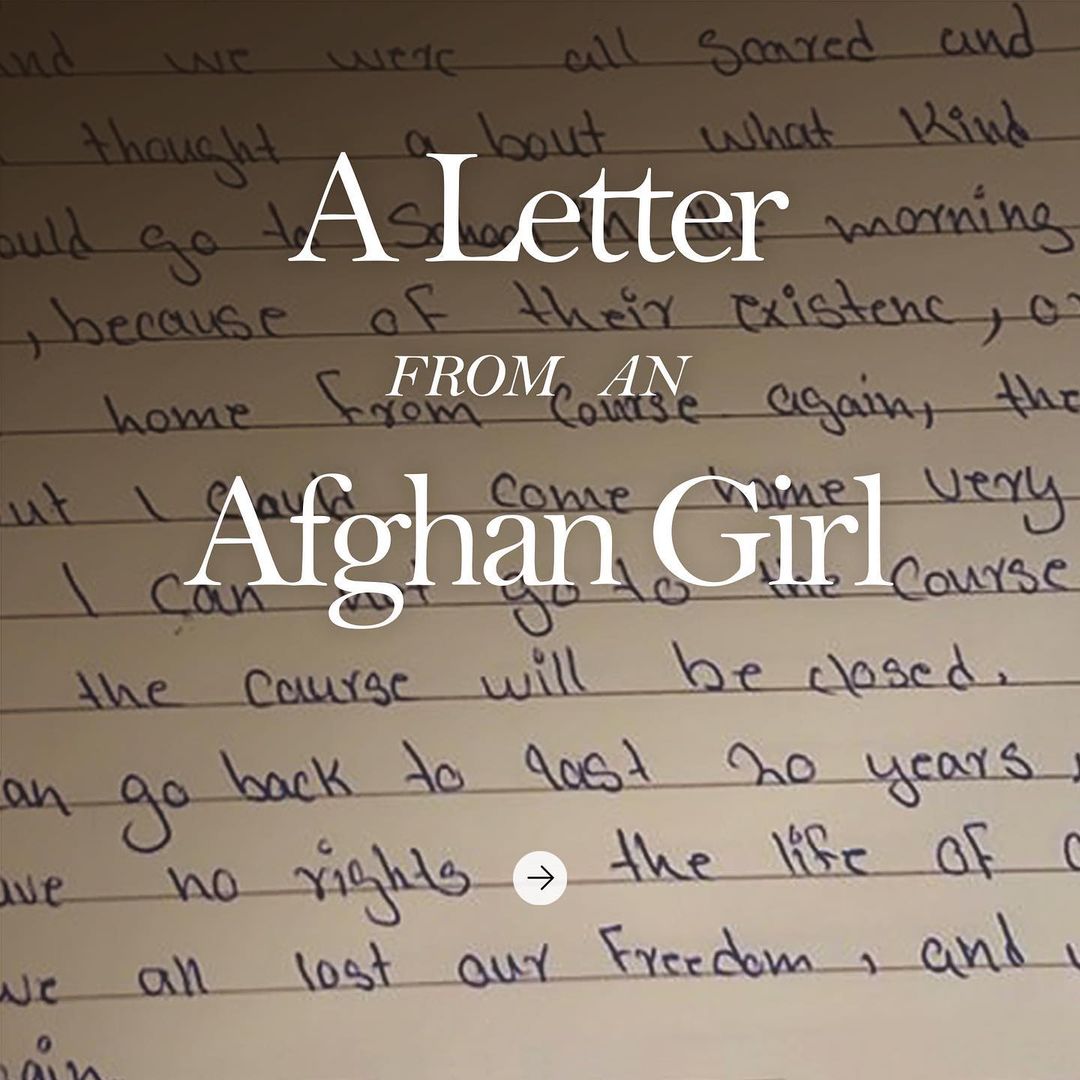 A Letter
FROM AN
Afghan Girl
and we were all Scared and
thought a bout what Kind
ould go to School in the morning
, because of their existenc,
home from Course again,
ut I Could come home very
I Can not go to the Course
the Course will be closed.
an go back to last 20 years
ave no rights the life of
we all lost our Freedom, and
ain.